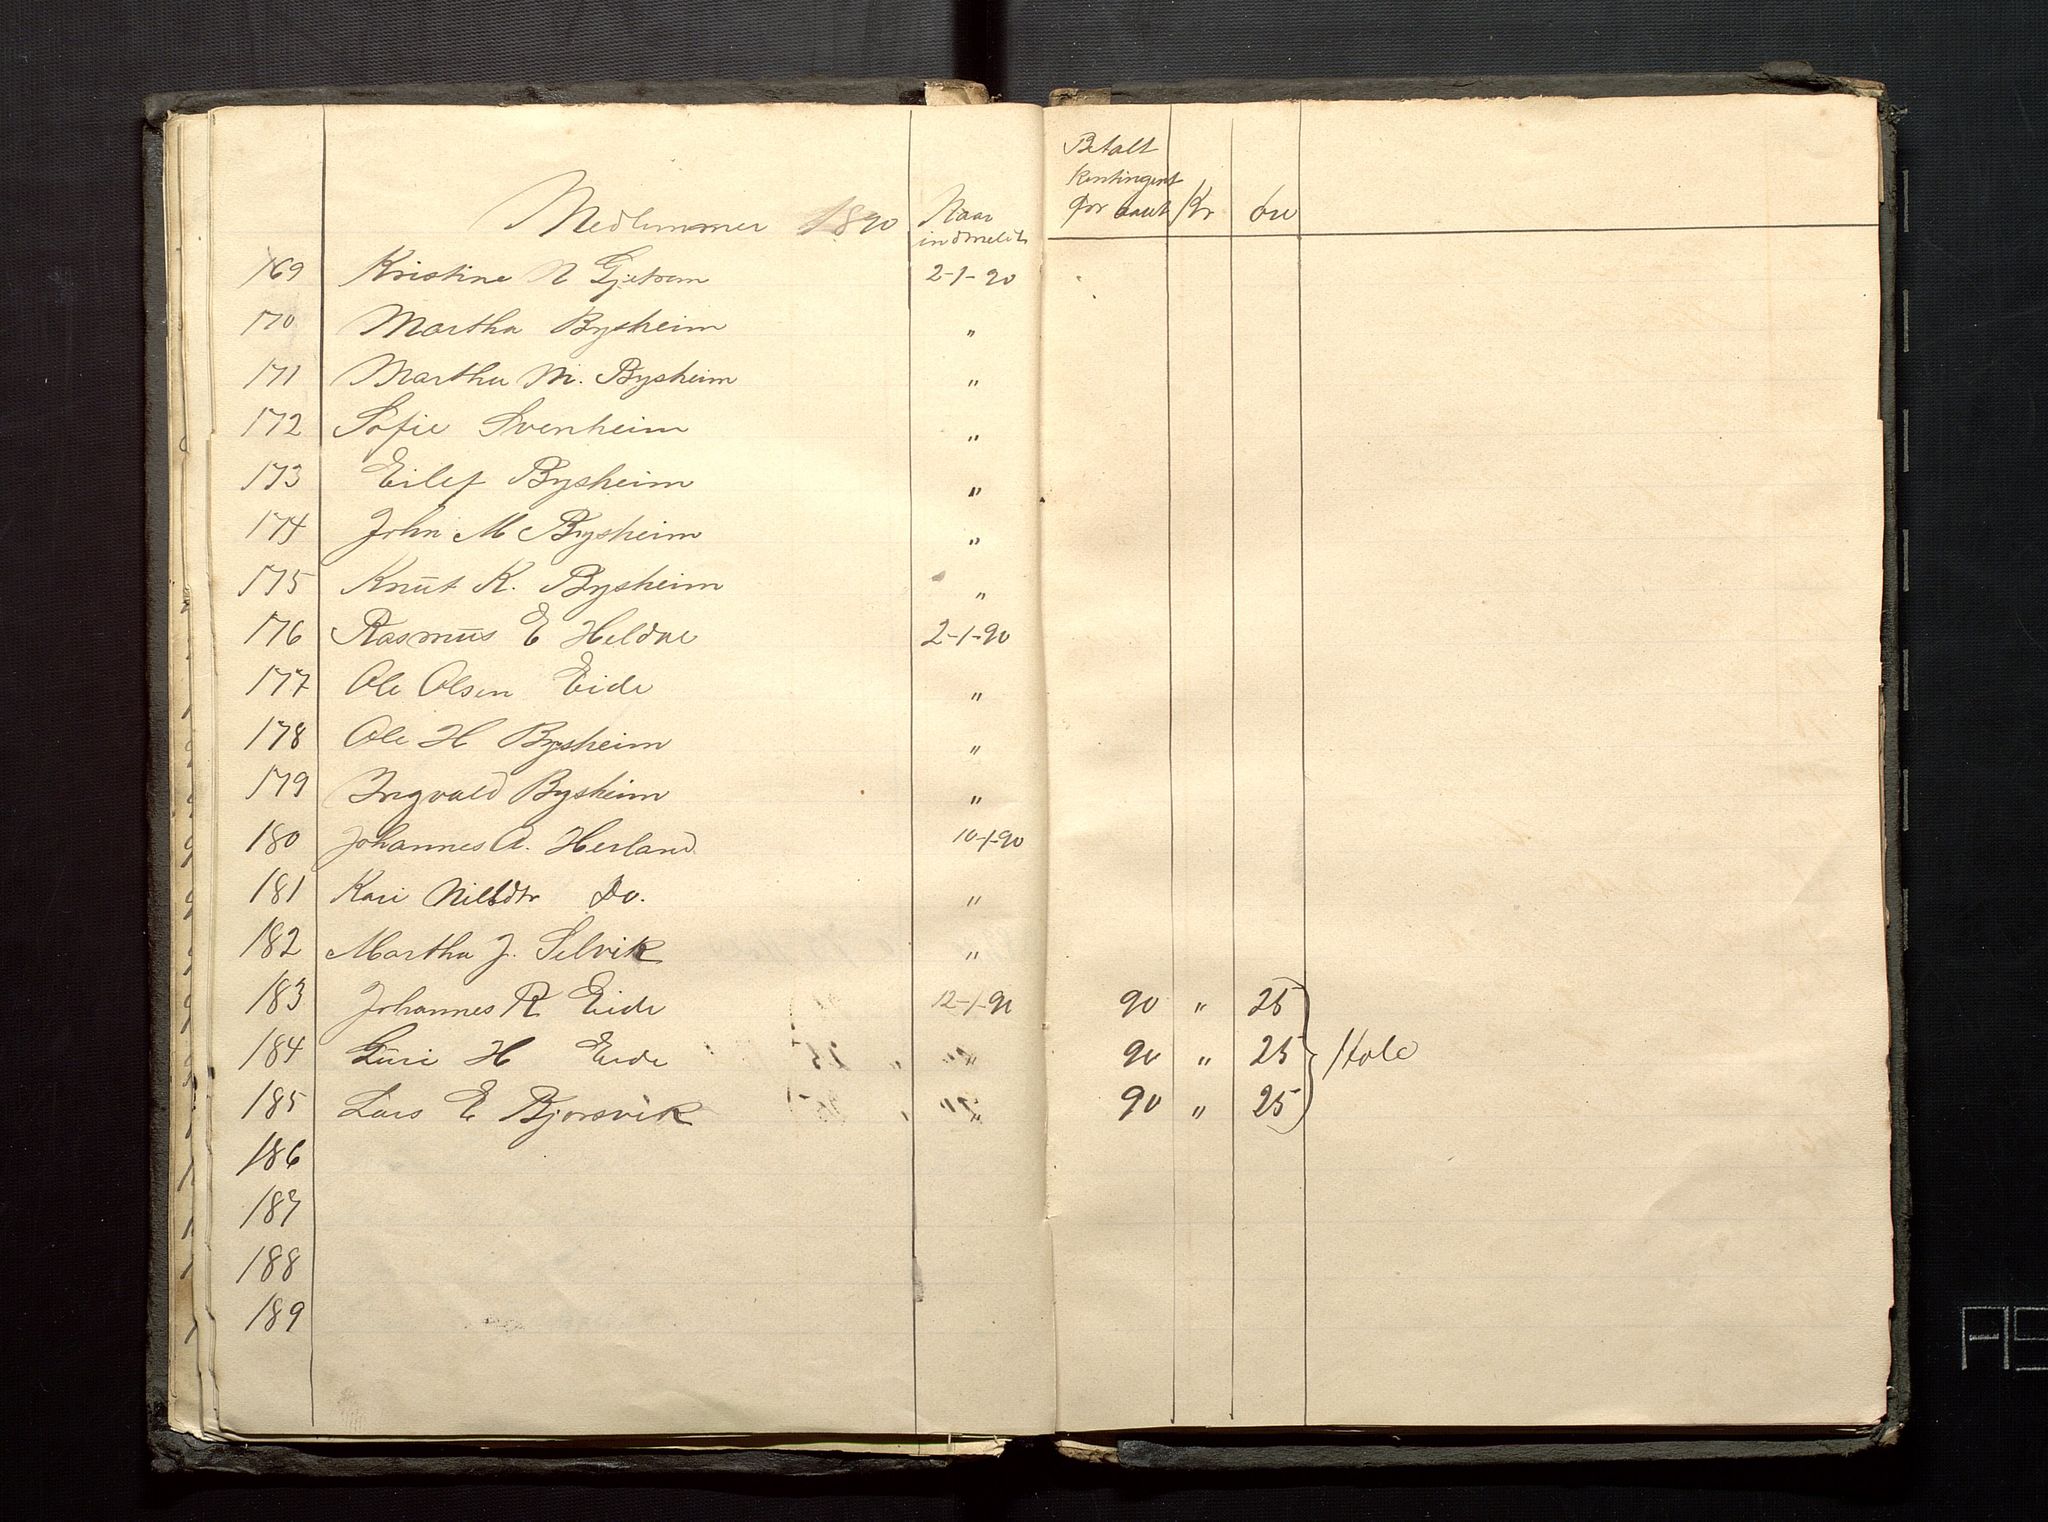 Medlemmer 1890 Naar indmeldt Betalt Kontingent for aaret Kr öre
169 Kristine N Gjetvam 2-1-90
170 Martha Bysheim "
171 Martha M. Bysheim "
172 Sofie Svenheim "
173 Eilef Bysheim "
174 John M Bysheim "
175 Knut K. Bysheim "
176 Rasmus E Heldal 2-1-90
177 Ole Olsen Eide "
178 Ole H Bysheim "
179 Ingvald Bysheim "
180 Johannes A. Herland 10-1-90
181 Kari Nilsdtr Do. "
182 Martha J. Selvik "
183 Johannes R Eide 12-1-90 90 " 25
184 Guri H Eide " 90 " 25 Hole
185 Lars E Bjorsvik " 90 " 25
186
187
188
189